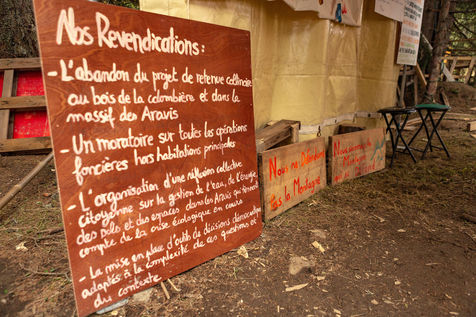 Nos Revendications :
- L'abandon du projet de retenue collinaire
au bois de la colombière et dans le
massif des Aravis
- Un moratoire sur toutes les opérations
foncières hors habitations principales
- L'organisation d'une réflexion collective
citoyenne sur la gestion de l'eau, de l'énergie,
des sols et des espaces dans les Aravis qui tiennent
compte de la crise écologique en cours
- La mise en place d'outils de décisions démocratiques
adaptés à la complexité de ces questions et
du contexte
Nous ne Défendons
pas la Montagne
Nous
Montagne